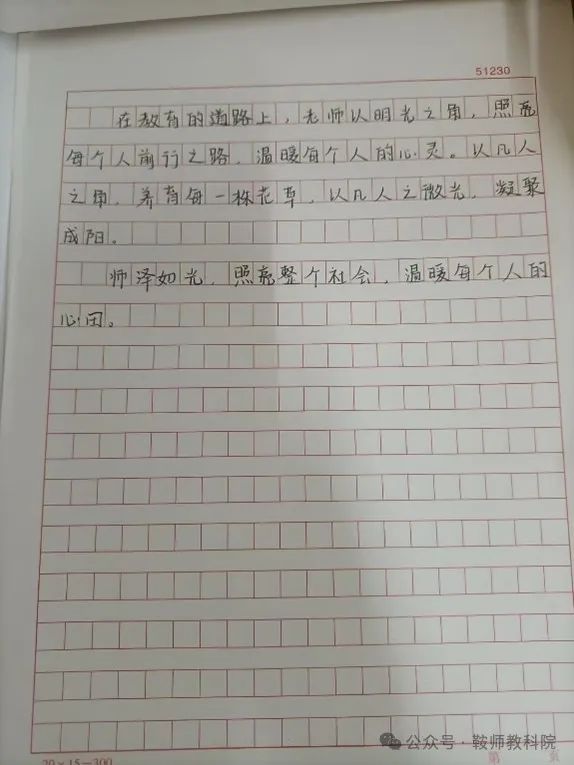 51230
在教育的道路上，老师以明光之角，照亮
每个人前行之路，温暖每个人的心灵。以凡人
之角，养育每一株花草，以凡人之微光，凝聚
成阳。
师泽如光，照亮整个社会，温暖每个人的
心田。
20×15=300
第 页
公众号·鞍师教科院